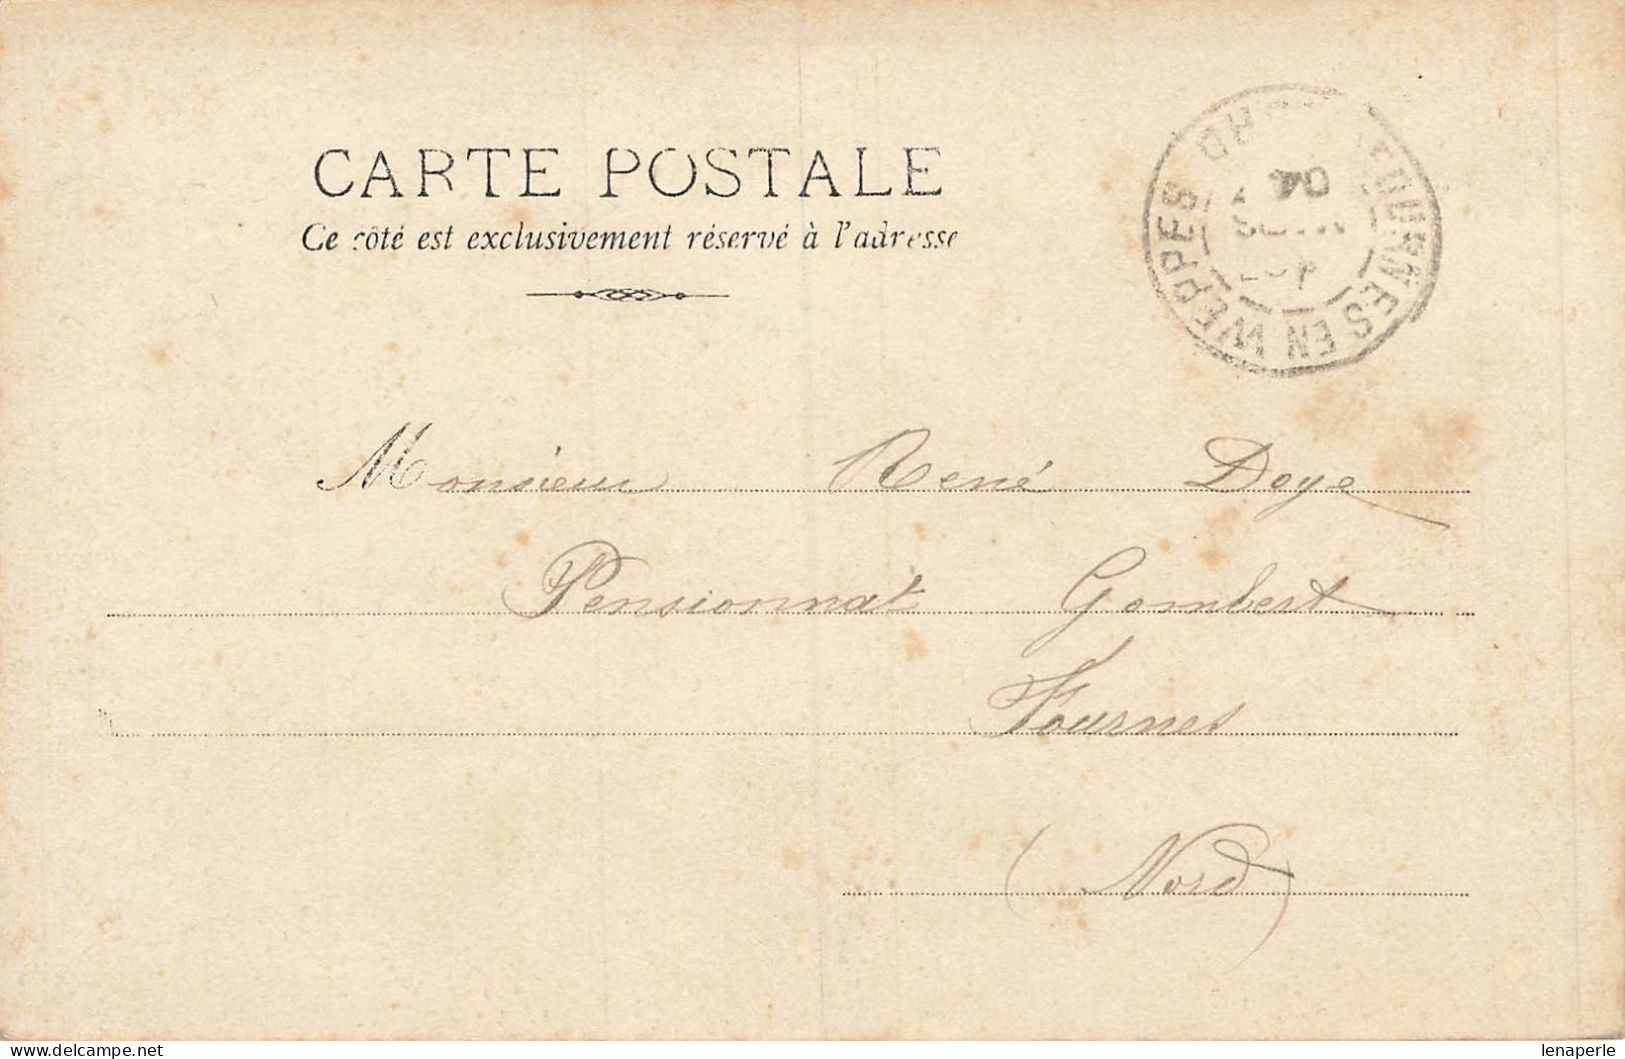 CARTE POSTALE
Ce côté est exclusivement réservé à l'adresse
FOURNES EN WEPPES
04
Monsieur René Deye
Pensionnat Gombert
Fournes
(Nord)
www.delcampe.net
lenaperle